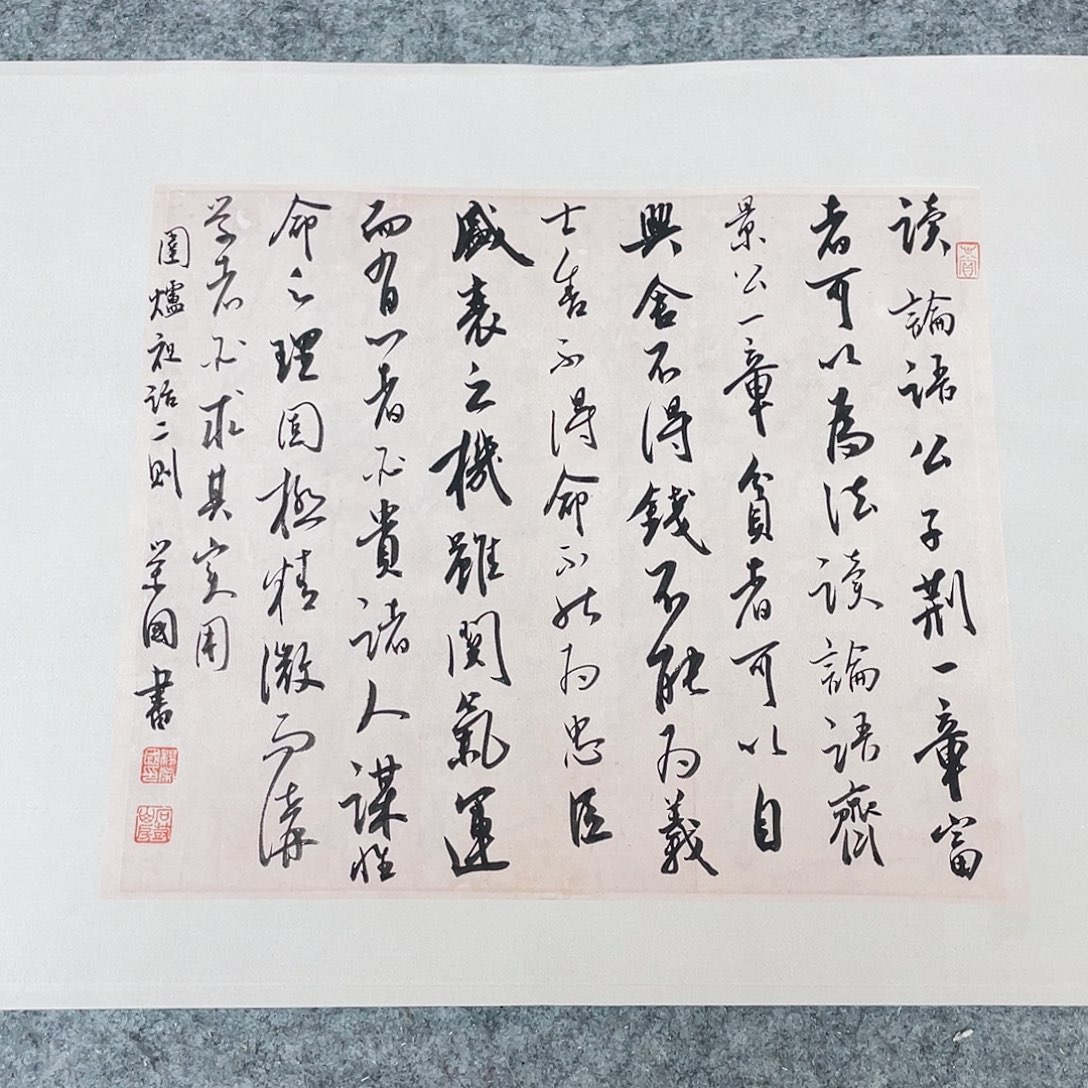 读論语公子荆一章富
者可以為法读論语齊
景公一章貧者可以自
興舍不得錢不能为義
士舍不得命不能为忠臣
盛衰之機雖関氣運
而有心者必貴诸人謀性
命之理固極精微而講
学者必求其实用
圍爐夜话二则 荣國書